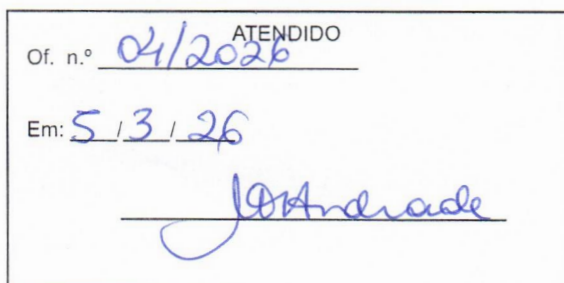 ATENDIDO
Of. n.º 04/2026
Em: 5 / 3 / 26
Andrade